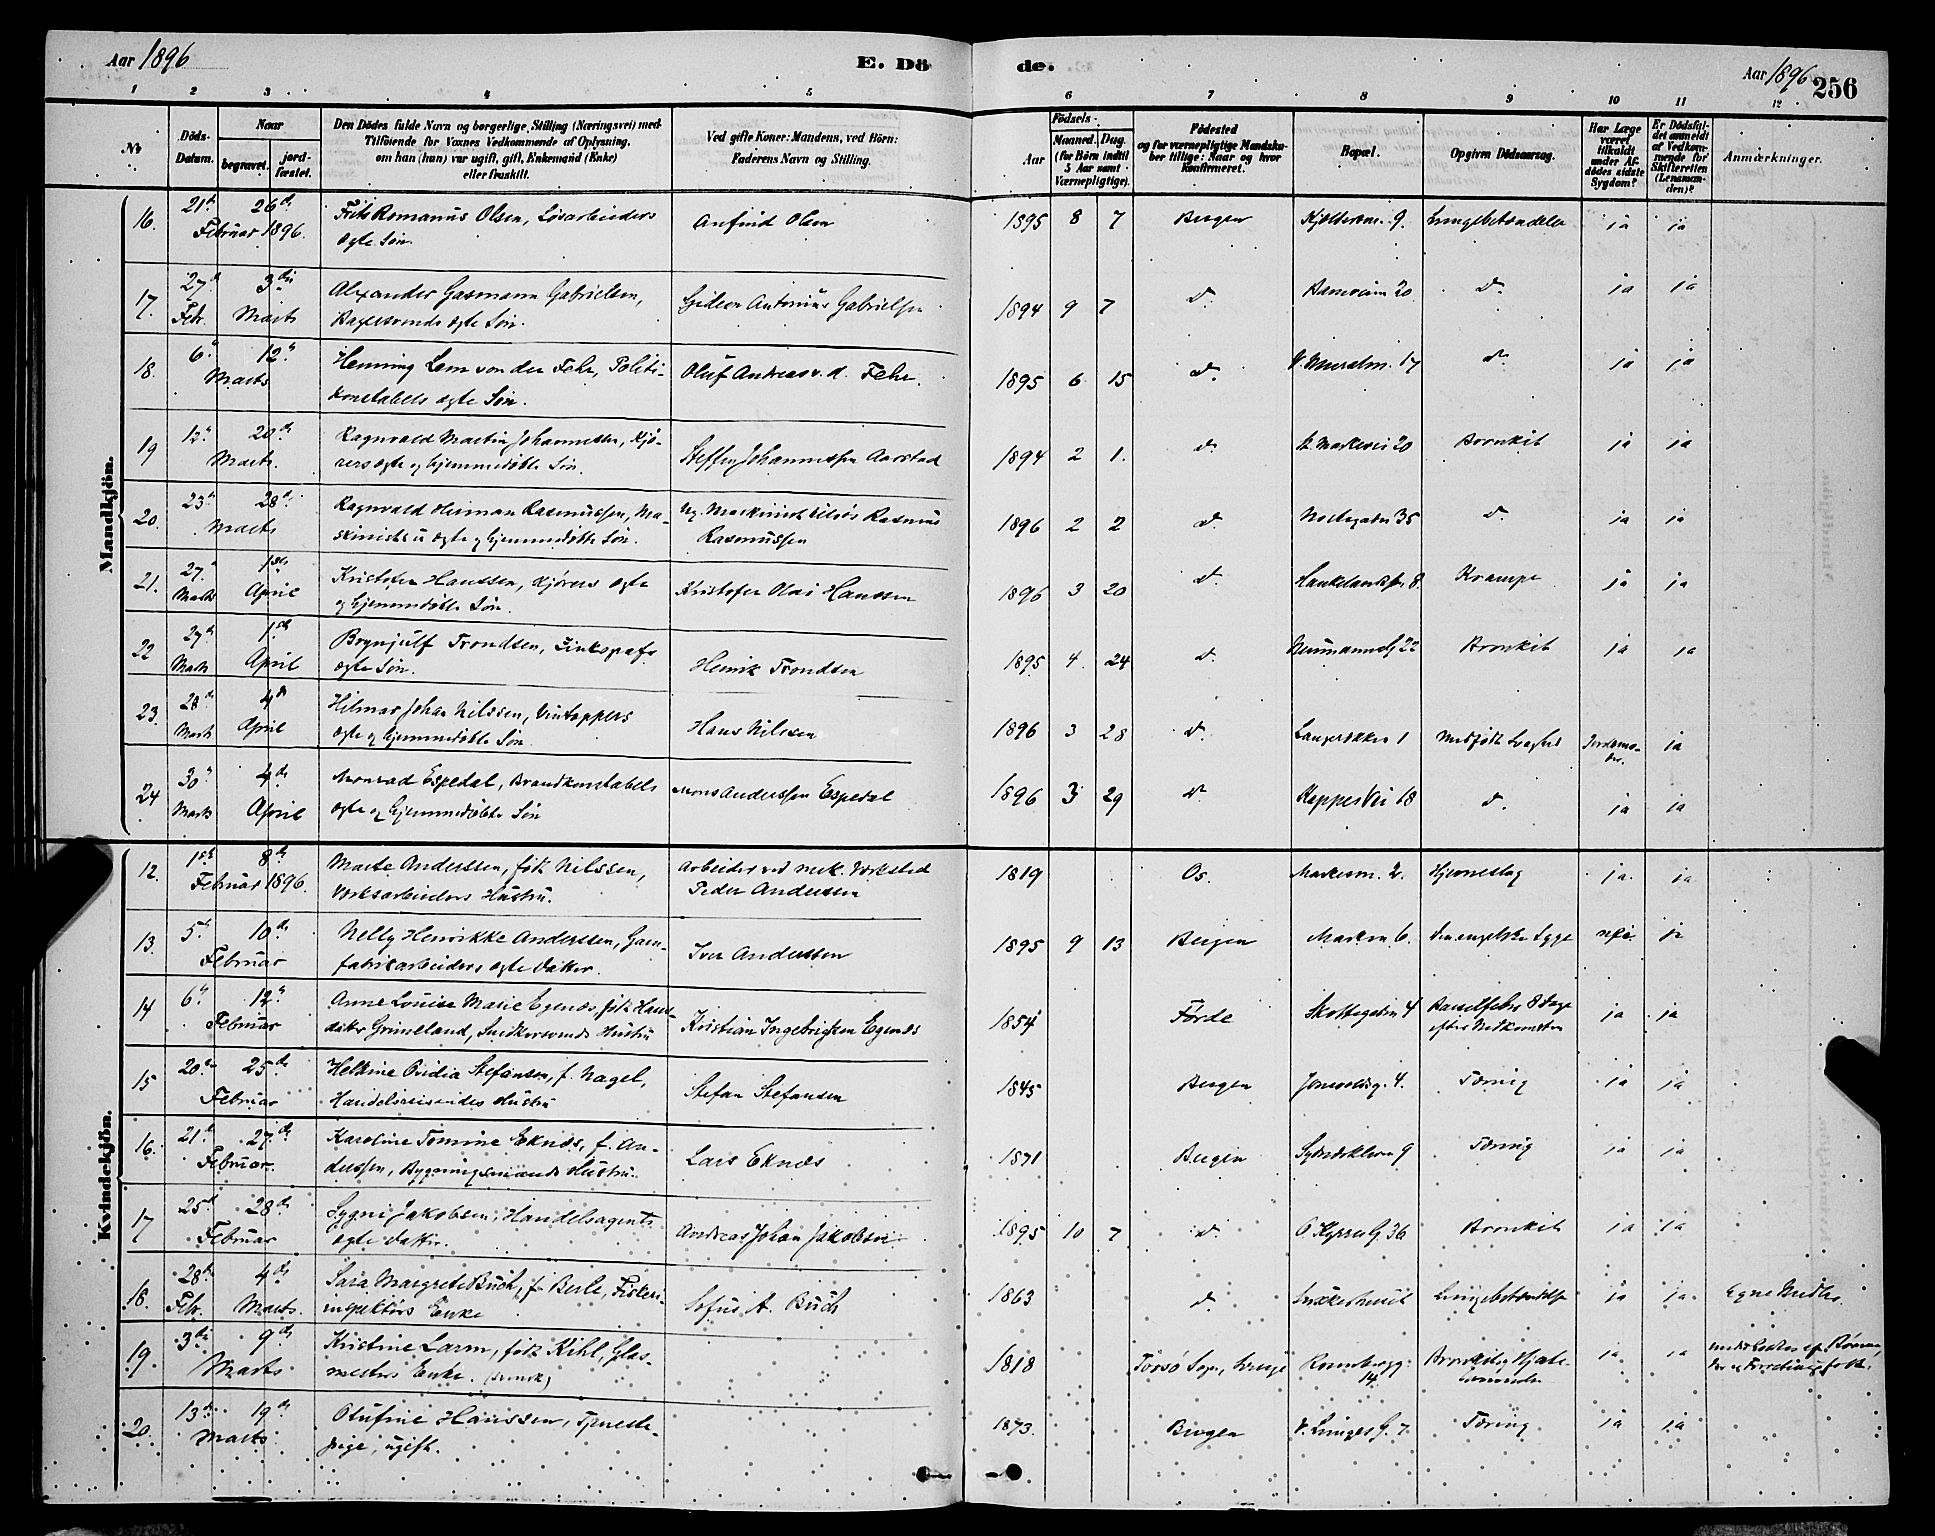 Aar 1896
E. Dö de.
Aar 1896 256
1 2 3 4 5 6 7 8 9 10 11 12
No
Döds-Datum.
Naar
begravet.
jord-fæstet.
Den Dödes fulde Navn og borgerlige Stilling (Næringsvei) med
Tilföiende for Voxnes Vedkommende af Oplysning,
om han (hun) var ugift, gift, Enkemand (Enke)
eller fraskilt.
Ved gifte Koner: Mandens, ved Börn:
Faderens Navn og Stilling.
Födsels-
Aar
Maaned. Dag.
(for Börn indtil
5 Aar samt
Værnepligtige).
Födested
og for værnepligtige Mandska-
ber tillige: Naar og hvor
konfirmeret.
Bopæl.
Opgiven Dödsaarsag.
Har Læge
været
tilkaldt
under Af-
dödes sidste
Sygdom?
Er Dödsfal-
det anmeldt
af Vedkom-
mende for
Skifteretten
(Lensman-
den)?
Anmærkninger.
Mandkjön.
16. 21de 26de Februar 1896. Frits Romanus Olsen, Løsarbeiders
ægte Søn. Anfind Olsen 1895 8 7 Bergen 9. Lungebetændelse ja ja
17. 27de Febr. 3die Marts Alexander Gasmann Gabrielsen,
Bagersvends ægte Søn. Gideon Antonius Gabrielsen 1894 9 7 do. 20 do. ja ja
18. 6te 12te Marts Henning Lem von der Fehr, Politi-
konstabels ægte Søn. Oluf Andreas v. d. Fehr. 1895 6 15 do. 17 do. ja ja
19 12te 20de Marts. Ragnvald Martin Johannessen, Kjø-
rers ægte og hjemmedøbte Søn. Steffen Johannessen Aarstad 1894 2 1. do. 20 Bronkit ja ja
20. 23de 28de Marts Ragnvald Herman Rasmussen, Ma-
skinists ægte og hjemmedøbte Søn. Rasmus
Rasmussen 1896 2 2 do. Nostegaten 35 do. ja ja
21. 27de Marts 1ste April Kristofer Hanssen, Kjørers ægte
og hjemmedøbte Søn. Kristofer Olai Hanssen 1896 3 20 do. 8. Krampe ja ja
22 27de Marts 1ste April Brynjulf Trondsen,
ægte Søn. Henrik Trondsen 1895 4. 24 do. Neumannsg 22 Bronkit ja ja
23. 28de Marts 4de April Hilmar Johan Nilssen, Vintappers
ægte og hjemmedøbte Søn. Hans Nilssen 1896 3 28 do. 1 Medfødt Svaghed Jordemo-
der. ja
24 30te Marts 4de April Monrad Espedal, Brandkonstabels
ægte og hjemmedøbte Søn Mons Anderssen Espedal 1896 3 29 do. 18 do. ja ja
Kvindekjön.
12. 1ste 8de Februar 1896. Marte Anderssen, født Nilssen,
Værksarbeiders Hustru. Arbeider ved mek. Værksted
Peder Anderssen 1819 Os. Markevn. 2. Hjerneslag ja. ja
13. 5te 10de Februar Nelly Henrikke Anderssen, Garn-
fabrikarbeiders ægte Datter. Iver Anderssen 1895 9 13 Bergen Markevn. 6. Den engelske Syge nei. ja
14 6te 12te Februar Anne Louise Marie Egenæs, født Hans-
datter Grimeland, Snedkersvends Hustru Kristian Ingebrigtsen Egenæs 1854 Førde Skottegaten 4 Barselfeber 8 Dage
efter Nedkomsten ja ja
15 20de 25de Februar Helkine Ovidia Stefansen, f. Nagel,
Handelsreisendes Hustru Stefan Stefansen 1845 Bergen 4. Tæring ja ja
16. 21de 27de Februar. Karoline Tomine Eknæs, f. An-
derssen, Bygningsmands Hustru. Lars Eknæs 1871 Bergen 9 Tæring ja ja
17 25de 28de Februar Sygni Jakobsen, Handelsagents
ægte Datter. Andreas Johan Jakobsen 1895 10 7 do. O. Kyrres G 36 Bronkit ja ja
18. 28de Febr. 4de Marts. Sara Margrete Buch, f. Berle, Fiskeri-
inspektørs Enke Sofus A. Buch 1863 do. Lungebetændelse ja ja. Egne Midler.
19. 3die 9de Marts Kristine Larm, født Kihl, Glas-
mesters Enke. (svensk) 1818 Torsø Sogn, Sverige Rosenbergg.
14. Bronkit og Hjerte-
ja ja af Børnene,
20. 13de 19de Marts Olufine Hanssen, Tjeneste-
pige, ugift. 1873. Bergen 7 Tæring ja ja